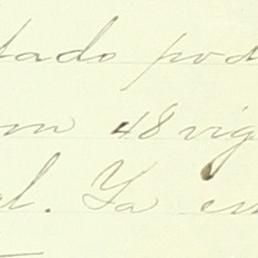 tado pod
om 48 vig
al. Ya en